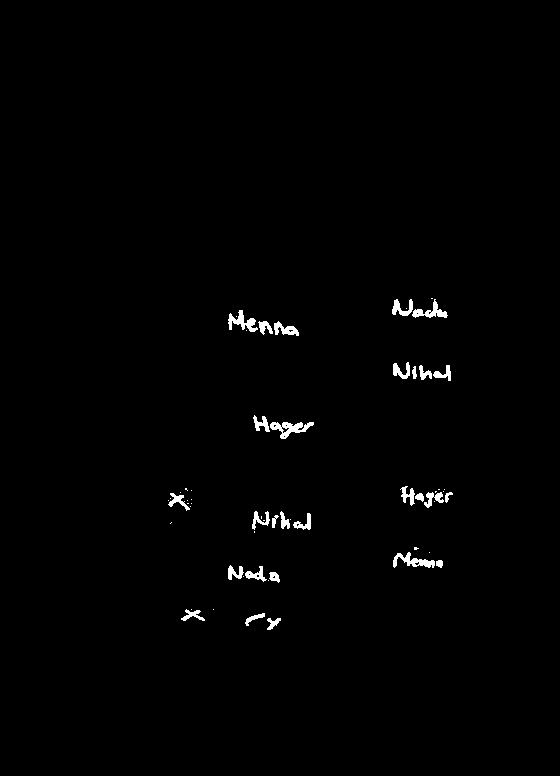 Menna Nada
Nihal
Hager
x Hager
Nihal
Menna
Nada
x